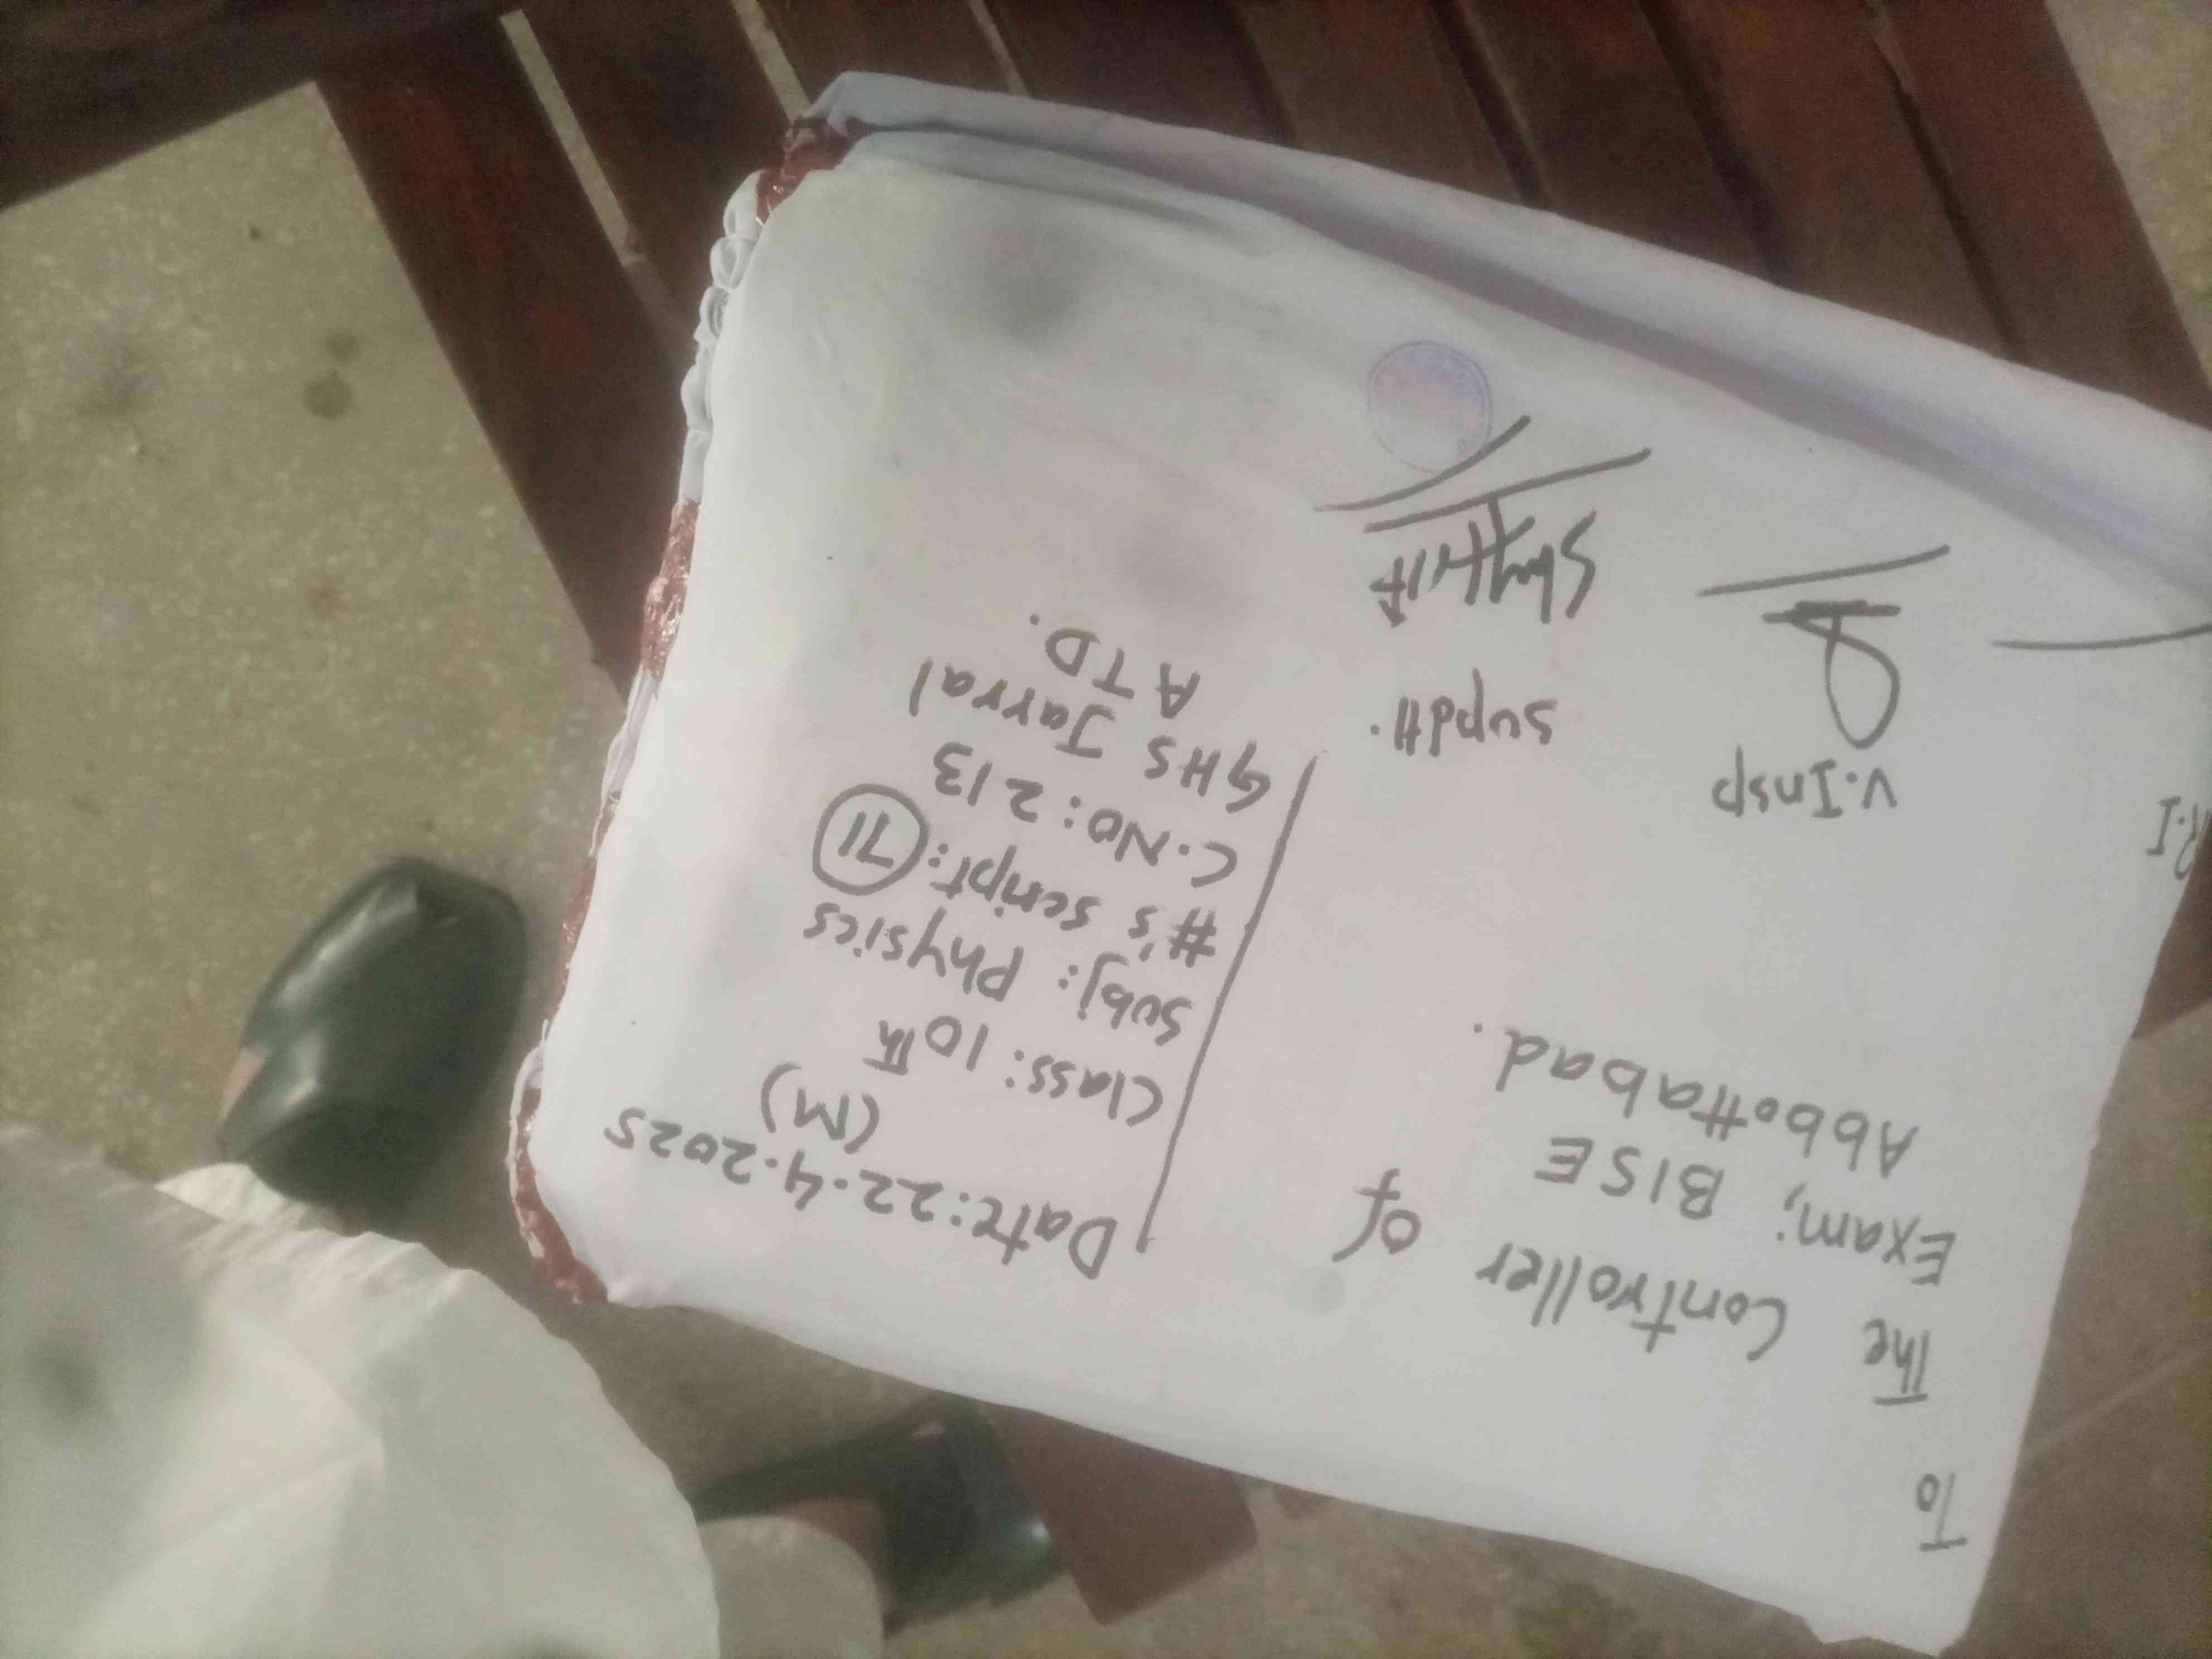 To
The Controller of
Exam; BISE
Abbottabad.
Date: 22.4.2025
(M)
Class: 10th
Subj: Physics
#'s script: 71
C.No: 213
GHS Jarral
ATD.
R.I
V.Insp
Supdtt.